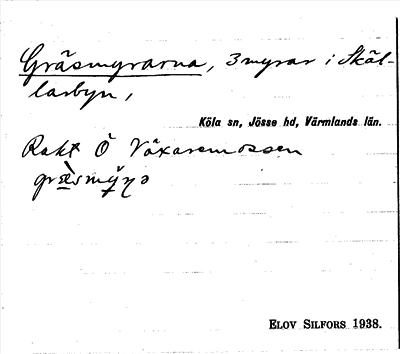 Gräsmyrarna, 3 myrar i Skäl-
larbyn,
Köla sn, Jösse hd, Värmlands län.
Rakt Ö Växaremossen
ELOV SILFORS 1938.